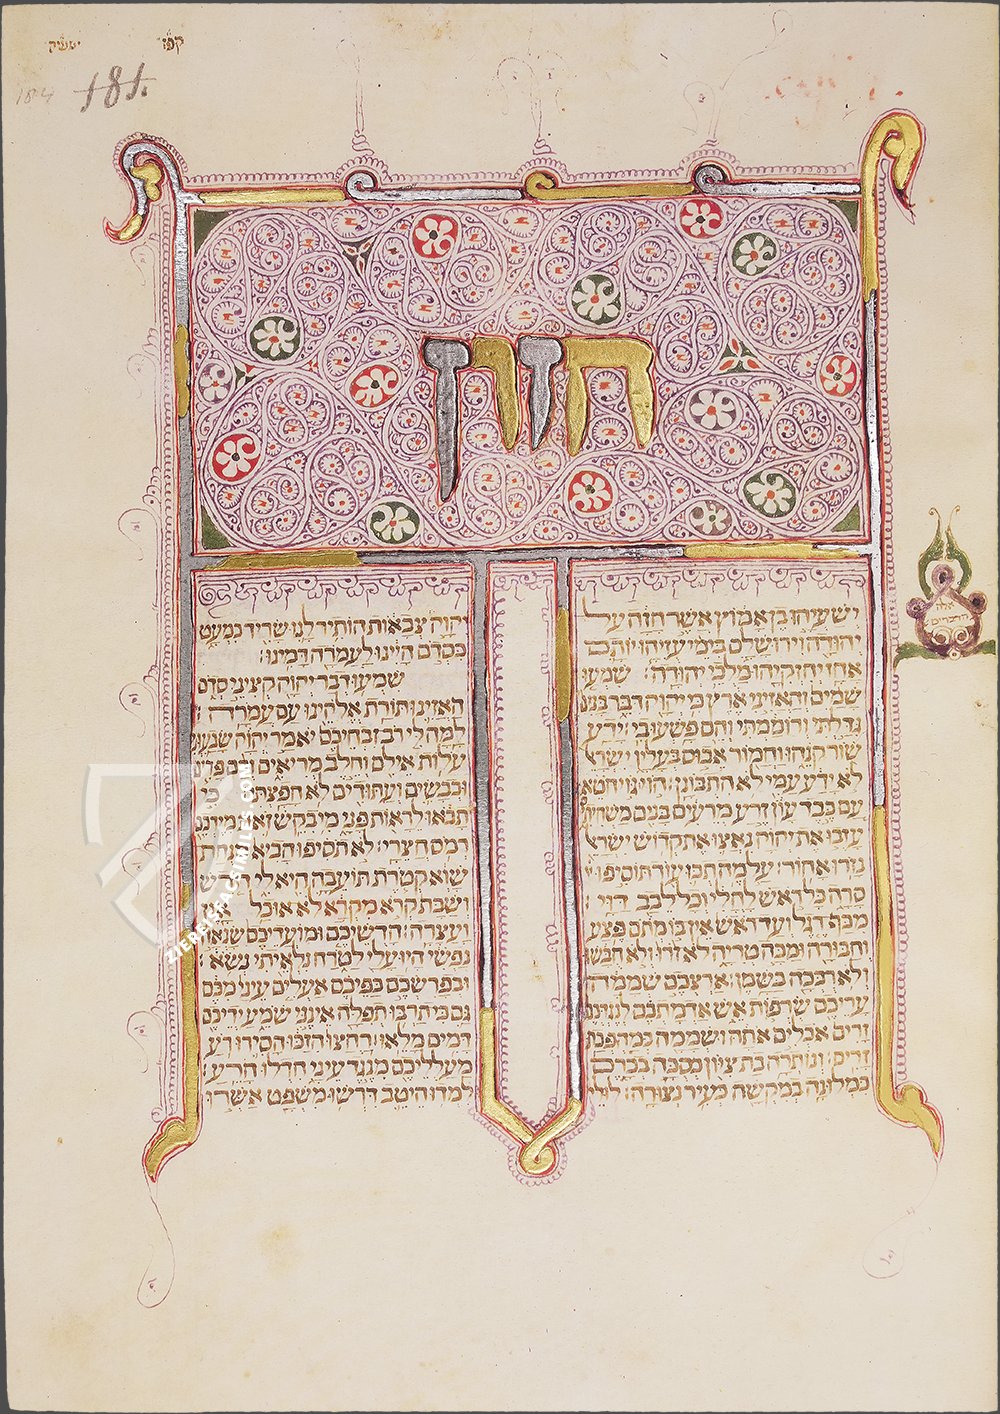 קפו
184 181.
חזון
ישעיהו בן אמוץ אשר חזה על
יהודה וירושלם בימי עזיהו יותם
אחז יחזקיהו מלכי יהודה: שמעו
שמים והאזיני ארץ כי יהוה דבר בנים
גדלתי ורוממתי והם פשעו בי: ידע
שור קנהו וחמור אבוס בעליו ישראל
לא ידע עמי לא התבונן: הוי גוי חטא
עם כבד עון זרע מרעים בנים משחיתים
עזבו את יהוה נאצו את קדוש ישראל
נזרו אחור: על מה תכו עוד תוסיפו
סרה כל ראש לחלי וכל לבב דוי:
מכף רגל ועד ראש אין בו מתם פצע
וחבורה ומכה טריה לא זרו ולא חבשו
ולא רככה בשמן: ארצכם שממה
עריכם שרפות אש אדמתכם לנגדכם
זרים אכלים אתה ושממה כמהפכת
זרים: ונותרה בת ציון כסכה בכרם
כמלונה במקשה כעיר נצורה: לולי
יהוה צבאות הותיר לנו שריד כמעט
כסדם היינו לעמרה דמינו:
שמעו דבר יהוה קציני סדם
האזינו תורת אלהינו עם עמרה:
למה לי רב זבחיכם יאמר יהוה שבעתי
עלות אילים וחלב מריאים ודם פרים
וכבשים ועתודים לא חפצתי: כי
תבאו לראות פני מי בקש זאת מידכם
רמס חצרי: לא תוסיפו הביא מנחת
שוא קטרת תועבה היא לי חדש
ושבת קרא מקרא לא אוכל און
ועצרה: חדשיכם ומועדיכם שנאה
נפשי היו עלי לטרח נלאיתי נשא:
ובפרשכם כפיכם אעלים עיני מכם
גם כי תרבו תפלה אינני שמע ידיכם
דמים מלאו: רחצו הזכו הסירו רע
מעלליכם מנגד עיני חדלו הרע:
למדו היטב דרשו משפט אשרו
אלה
הדברים
ZIEREIS FACSIMILES.COM